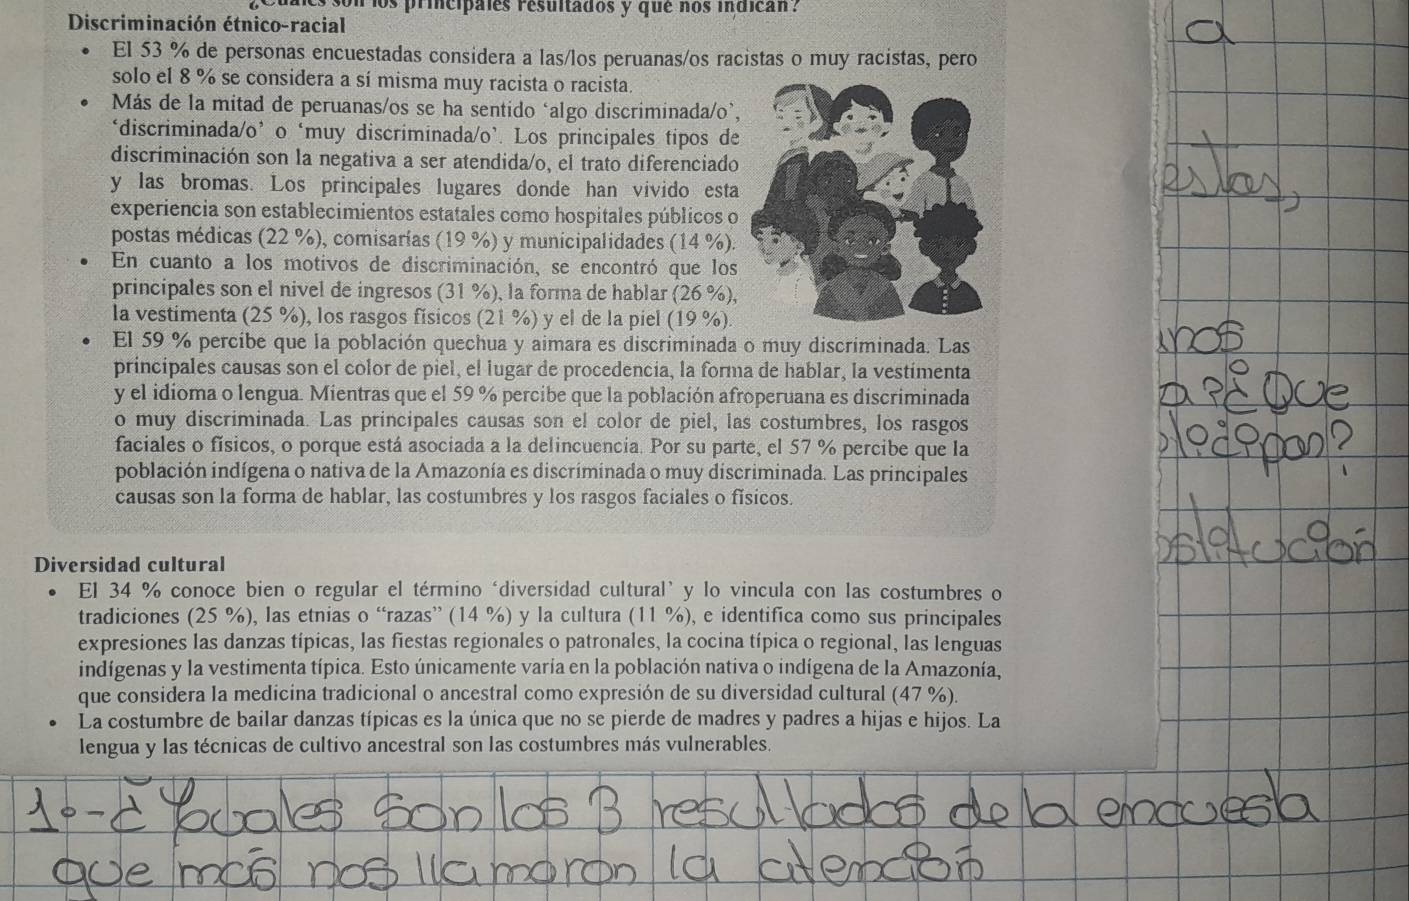 son los principales resultados y qué nos indican?
Discriminación étnico-racial
• El 53 % de personas encuestadas considera a las/los peruanas/os racistas o muy racistas, pero
solo el 8 % se considera a sí misma muy racista o racista.
• Más de la mitad de peruanas/os se ha sentido ‘algo discriminada/o’,
‘discriminada/o’ o ‘muy discriminada/o’. Los principales tipos de
discriminación son la negativa a ser atendida/o, el trato diferenciado
y las bromas. Los principales lugares donde han vivido esta
experiencia son establecimientos estatales como hospitales públicos o
postas médicas (22 %), comisarías (19 %) y municipalidades (14 %).
• En cuanto a los motivos de discriminación, se encontró que los
principales son el nivel de ingresos (31 %), la forma de hablar (26 %),
la vestimenta (25 %), los rasgos físicos (21 %) y el de la piel (19 %).
• El 59 % percibe que la población quechua y aimara es discriminada o muy discriminada. Las
principales causas son el color de piel, el lugar de procedencia, la forma de hablar, la vestimenta
y el idioma o lengua. Mientras que el 59 % percibe que la población afroperuana es discriminada
o muy discriminada. Las principales causas son el color de piel, las costumbres, los rasgos
faciales o físicos, o porque está asociada a la delincuencia. Por su parte, el 57 % percibe que la
población indígena o nativa de la Amazonía es discriminada o muy discriminada. Las principales
causas son la forma de hablar, las costumbres y los rasgos faciales o físicos.
Diversidad cultural
• El 34 % conoce bien o regular el término ‘diversidad cultural’ y lo vincula con las costumbres o
tradiciones (25 %), las etnias o “razas” (14 %) y la cultura (11 %), e identifica como sus principales
expresiones las danzas típicas, las fiestas regionales o patronales, la cocina típica o regional, las lenguas
indígenas y la vestimenta típica. Esto únicamente varía en la población nativa o indígena de la Amazonía,
que considera la medicina tradicional o ancestral como expresión de su diversidad cultural (47 %).
• La costumbre de bailar danzas típicas es la única que no se pierde de madres y padres a hijas e hijos. La
lengua y las técnicas de cultivo ancestral son las costumbres más vulnerables.
a
estas,
nos
Que
1.-¿ son los 3 resultados de la encuesta
que más nos llamaron la atención